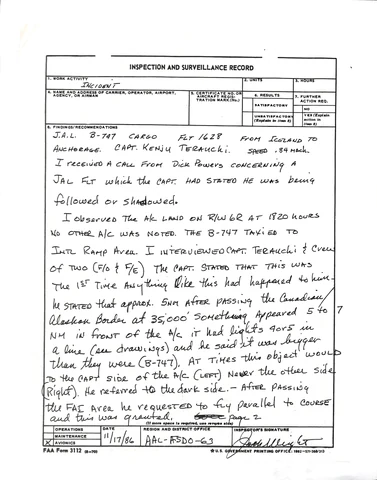 INSPECTION AND SURVEILLANCE RECORD
1. WORK ACTIVITY
INCIDENT
2. UNITS
3. HOURS
4. NAME AND ADDRESS OF CARRIER, OPERATOR, AIRPORT, AGENCY, OR AIRMAN
5. CERTIFICATE NO. OR AIRCRAFT REGISTRATION MARK (No.)
6. RESULTS
SATISFACTORY
UNSATISFACTORY (Explain in item 8)
7. FURTHER ACTION REQ.
NO
YES (Explain action in item 8)
8. FINDINGS/RECOMMENDATIONS
J.A.L. B-747 CARGO FLT 1628 FROM ICELAND TO
ANCHORAGE. CAPT. KENJU TERAUCHI. SPEED .84 MACH.
I RECEIVED A CALL FROM DICK POWERS CONCERNING A
JAL FLT which the CAPT. HAD STATED HE WAS being
followed or shadowed.
I OBSERVED THE A/C LAND ON R/W 6R AT 1820 HOURS
NO OTHER A/C WAS NOTED. THE B-747 TAXIED TO
INTL RAMP AREA. I INTERVIEWED CAPT. TERAUCHI & CREW
OF TWO (F/O & F/E) THE CAPT. STATED THAT THIS WAS
The 1ST Time Anything like this had happened to him-
he STATED that approx. 5NM AFTER PASSING the Canadian/
Alaskan Border at 35,000' Something Appeared 5 to 7
NM IN front of the A/C it had lights 4 or 5 in
a line (see drawings) and he said it was bigger
than they were (B-747). AT TIMES this object WOULD
TO the CAPT side of the A/C (LEFT) NEVER the other side
(Right). He referred to the dark side. - AFTER PASSING
the FAI AREA he requested to fly parallel to COURSE
and this was granted. Page 2
(If more space is required, use reverse side)
OPERATIONS
MAINTENANCE
X AVIONICS
DATE
11/17/86
REGION AND DISTRICT OFFICE
AAL-FSDO-63
INSPECTOR'S SIGNATURE
Jack Wright
FAA Form 3112
U.S. GOVERNMENT PRINTING OFFICE: